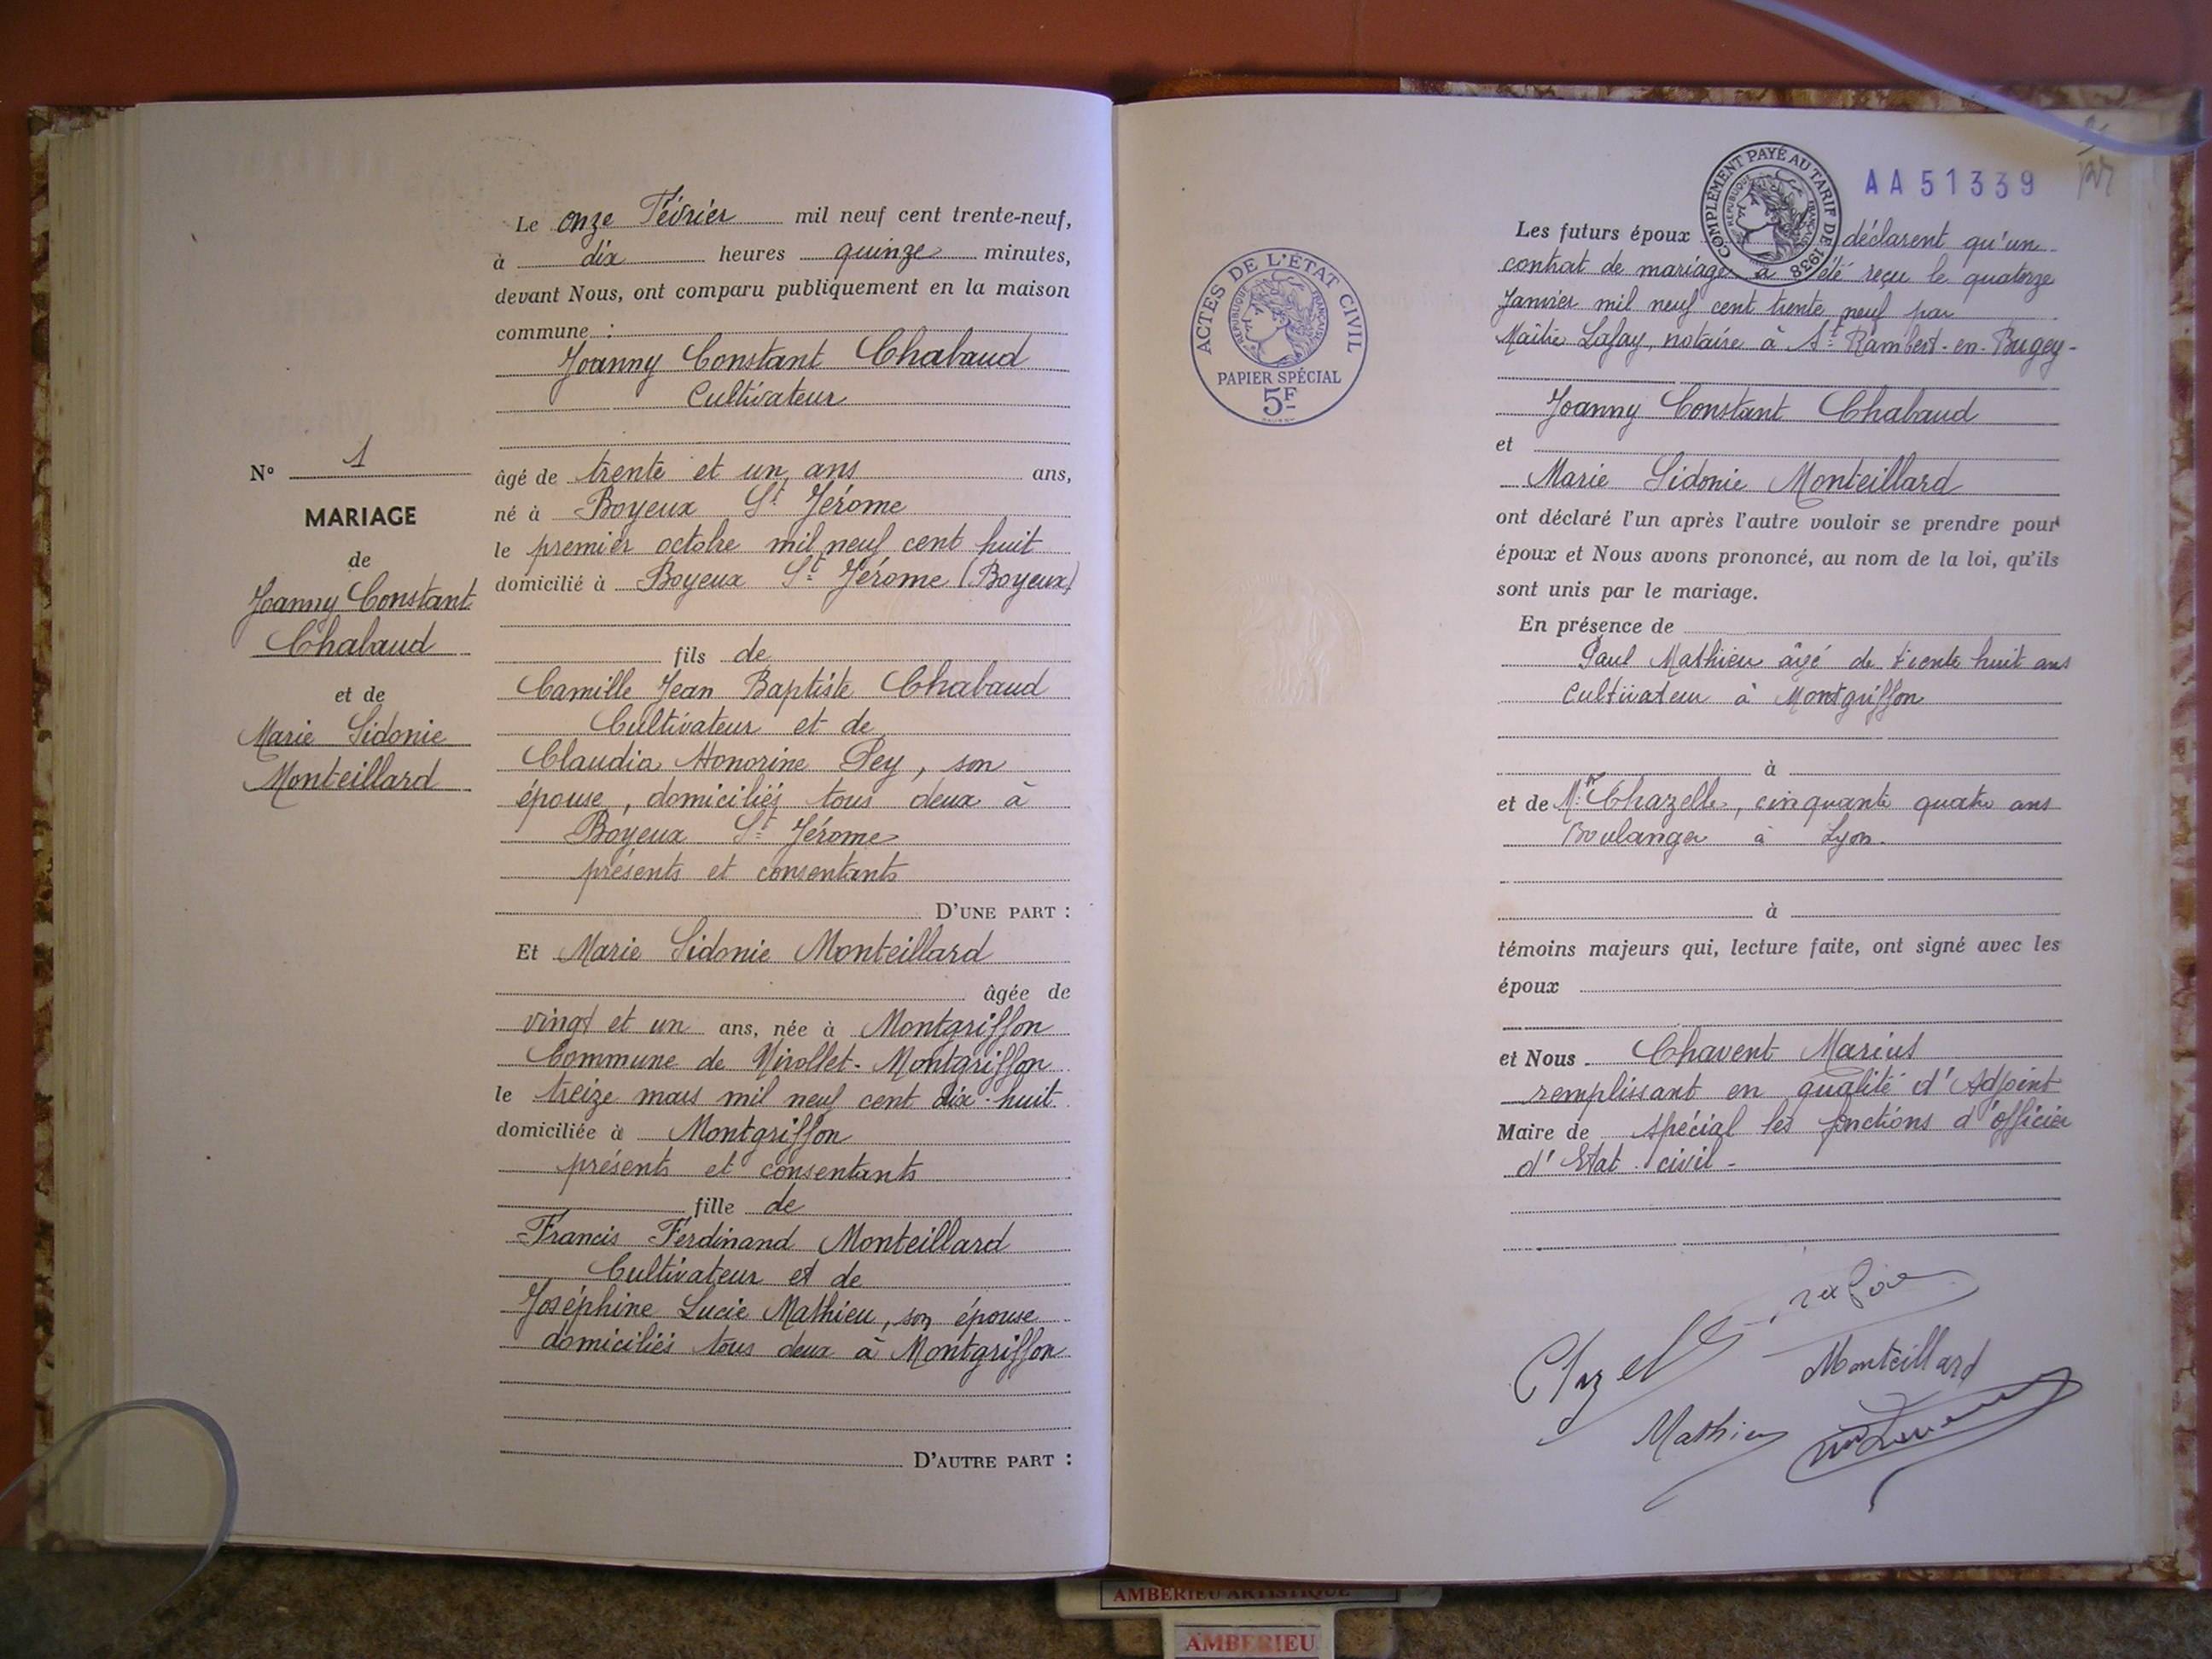 Le onze Février mil neuf cent trente-neuf,
à dix heures quinze minutes,
devant Nous, ont comparu publiquement en la maison
commune :
Joanny Constant Chabaud
Cultivateur
N° 1
MARIAGE
de
Joanny Constant
Chabaud
et de
Marie Sidonie
Monteillard
âgé de trente et un ans ans,
né à Boyeux St Jérome
le premier octobre mil neuf cent huit
domicilié à Boyeux St Jérome (Boyeux)
fils de
Camille Jean Baptiste Chabaud
Cultivateur et de
Claudia Honorine Pey, son
épouse, domiciliés tous deux à
Boyeux St Jérome
présents et consentants
D'UNE PART :
Et Marie Sidonie Monteillard
âgée de
vingt et un ans, née à Montgriffon
Commune de Nivollet-Montgriffon
le treize mars mil neuf cent dix-huit
domiciliée à Montgriffon
présents et consentants
fille de
Francis Ferdinand Monteillard
Cultivateur et de
Joséphine Lucie Mathieu, son épouse
domiciliés tous deux à Montgriffon
D'AUTRE PART :
ACTES DE L'ÉTAT CIVIL
RÉPUBLIQUE FRANÇAISE
PAPIER SPÉCIAL
5F
COMPLÉMENT PAYÉ AU TARIF DE 1938
RÉPUBLIQUE FRANÇAISE
AA51339
Les futurs époux déclarent qu'un
contrat de mariage a été reçu le quatorze
Janvier mil neuf cent trente neuf par
Maître Lafay, notaire à St Rambert-en-Bugey-
Joanny Constant Chabaud
et
Marie Sidonie Monteillard
ont déclaré l'un après l'autre vouloir se prendre pour
époux et Nous avons prononcé, au nom de la loi, qu'ils
sont unis par le mariage.
En présence de
Paul Mathieu âgé de trente huit ans
Cultivateur à Montgriffon
à
et de Mr Chazelle, cinquante quatre ans
Boulanger à Lyon.
à
témoins majeurs qui, lecture faite, ont signé avec les
époux
et Nous Chavent Marius
remplissant en qualité d'Adjoint
Maire de spécial les fonctions d'officier
d'Etat civil-
Monteillard
Mathieu
AMBERIEU ARTISTIQUE
AMBERIEU